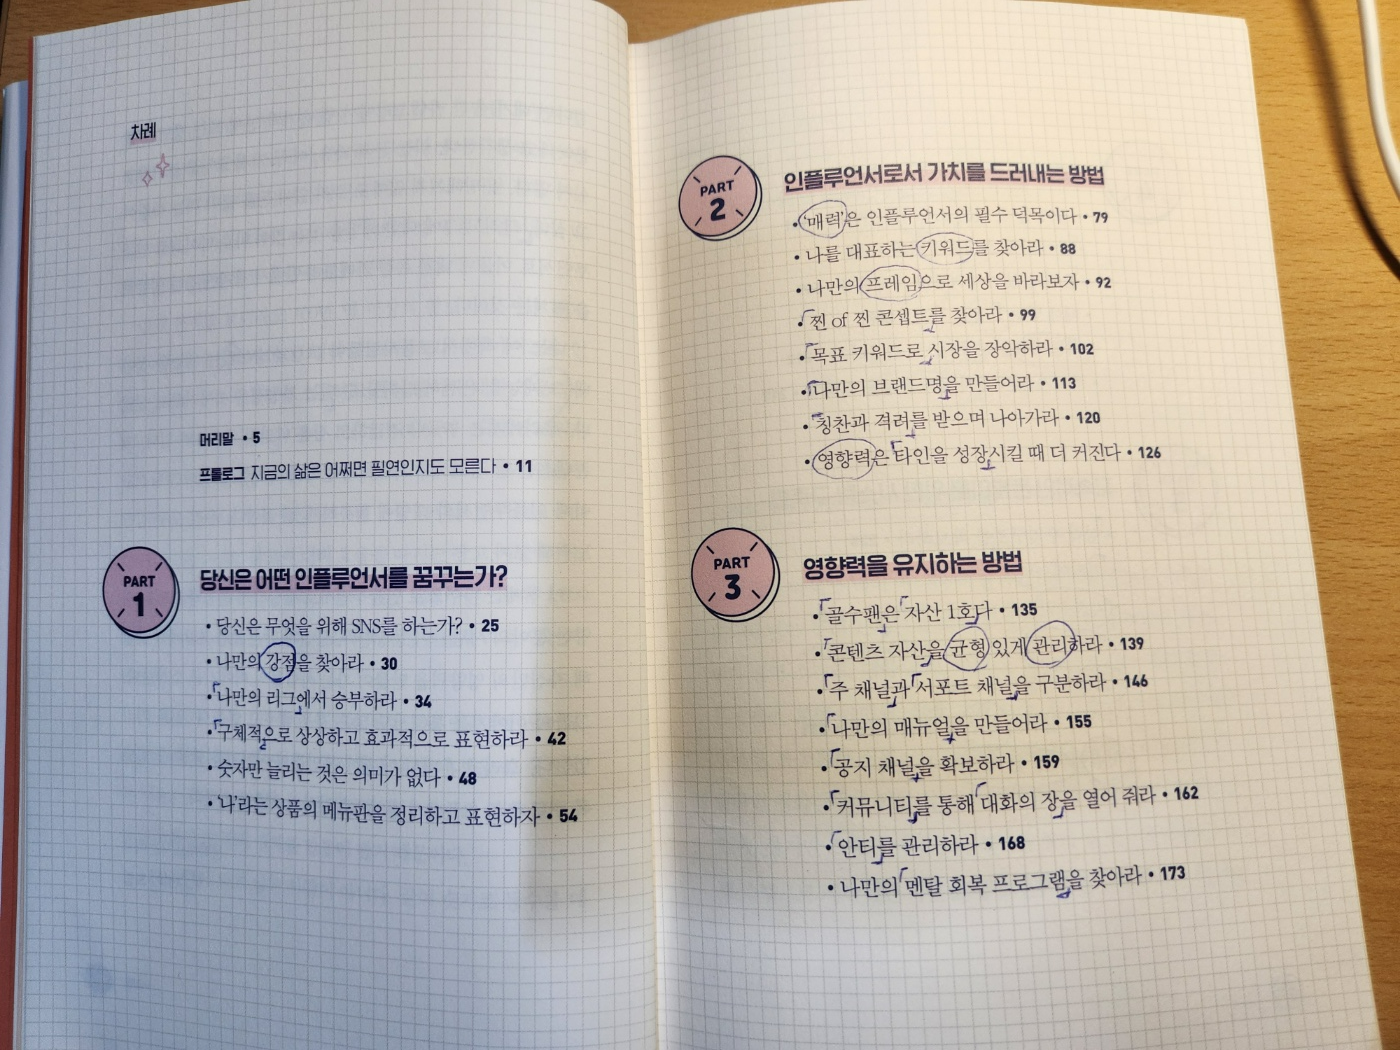 차례
머리말 • 5
프롤로그 지금의 삶은 어쩌면 필연인지도 모른다 • 11
PART
1
당신은 어떤 인플루언서를 꿈꾸는가?
• 당신은 무엇을 위해 SNS를 하는가? • 25
• 나만의 강점을 찾아라 • 30
• 나만의 리그에서 승부하라 • 34
• 구체적으로 상상하고 효과적으로 표현하라 • 42
• 숫자만 늘리는 것은 의미가 없다 • 48
• '나'라는 상품의 메뉴판을 정리하고 표현하자 • 54
PART
2
인플루언서로서 가치를 드러내는 방법
• '매력'은 인플루언서의 필수 덕목이다 • 79
• 나를 대표하는 키워드를 찾아라 • 88
• 나만의 프레임으로 세상을 바라보자 • 92
• 찐 of 찐 콘셉트를 찾아라 • 99
• 목표 키워드로 시장을 장악하라 • 102
• 나만의 브랜드명을 만들어라 • 113
• 칭찬과 격려를 받으며 나아가라 • 120
• 영향력은 타인을 성장시킬 때 더 커진다 • 126
PART
3
영향력을 유지하는 방법
• 골수팬은 자산 1호다 • 135
• 콘텐츠 자산을 균형 있게 관리하라 • 139
• 주 채널과 서포트 채널을 구분하라 • 146
• 나만의 매뉴얼을 만들어라 • 155
• 공지 채널을 확보하라 • 159
• 커뮤니티를 통해 대화의 장을 열어 줘라 • 162
• 안티를 관리하라 • 168
• 나만의 멘탈 회복 프로그램을 찾아라 • 173